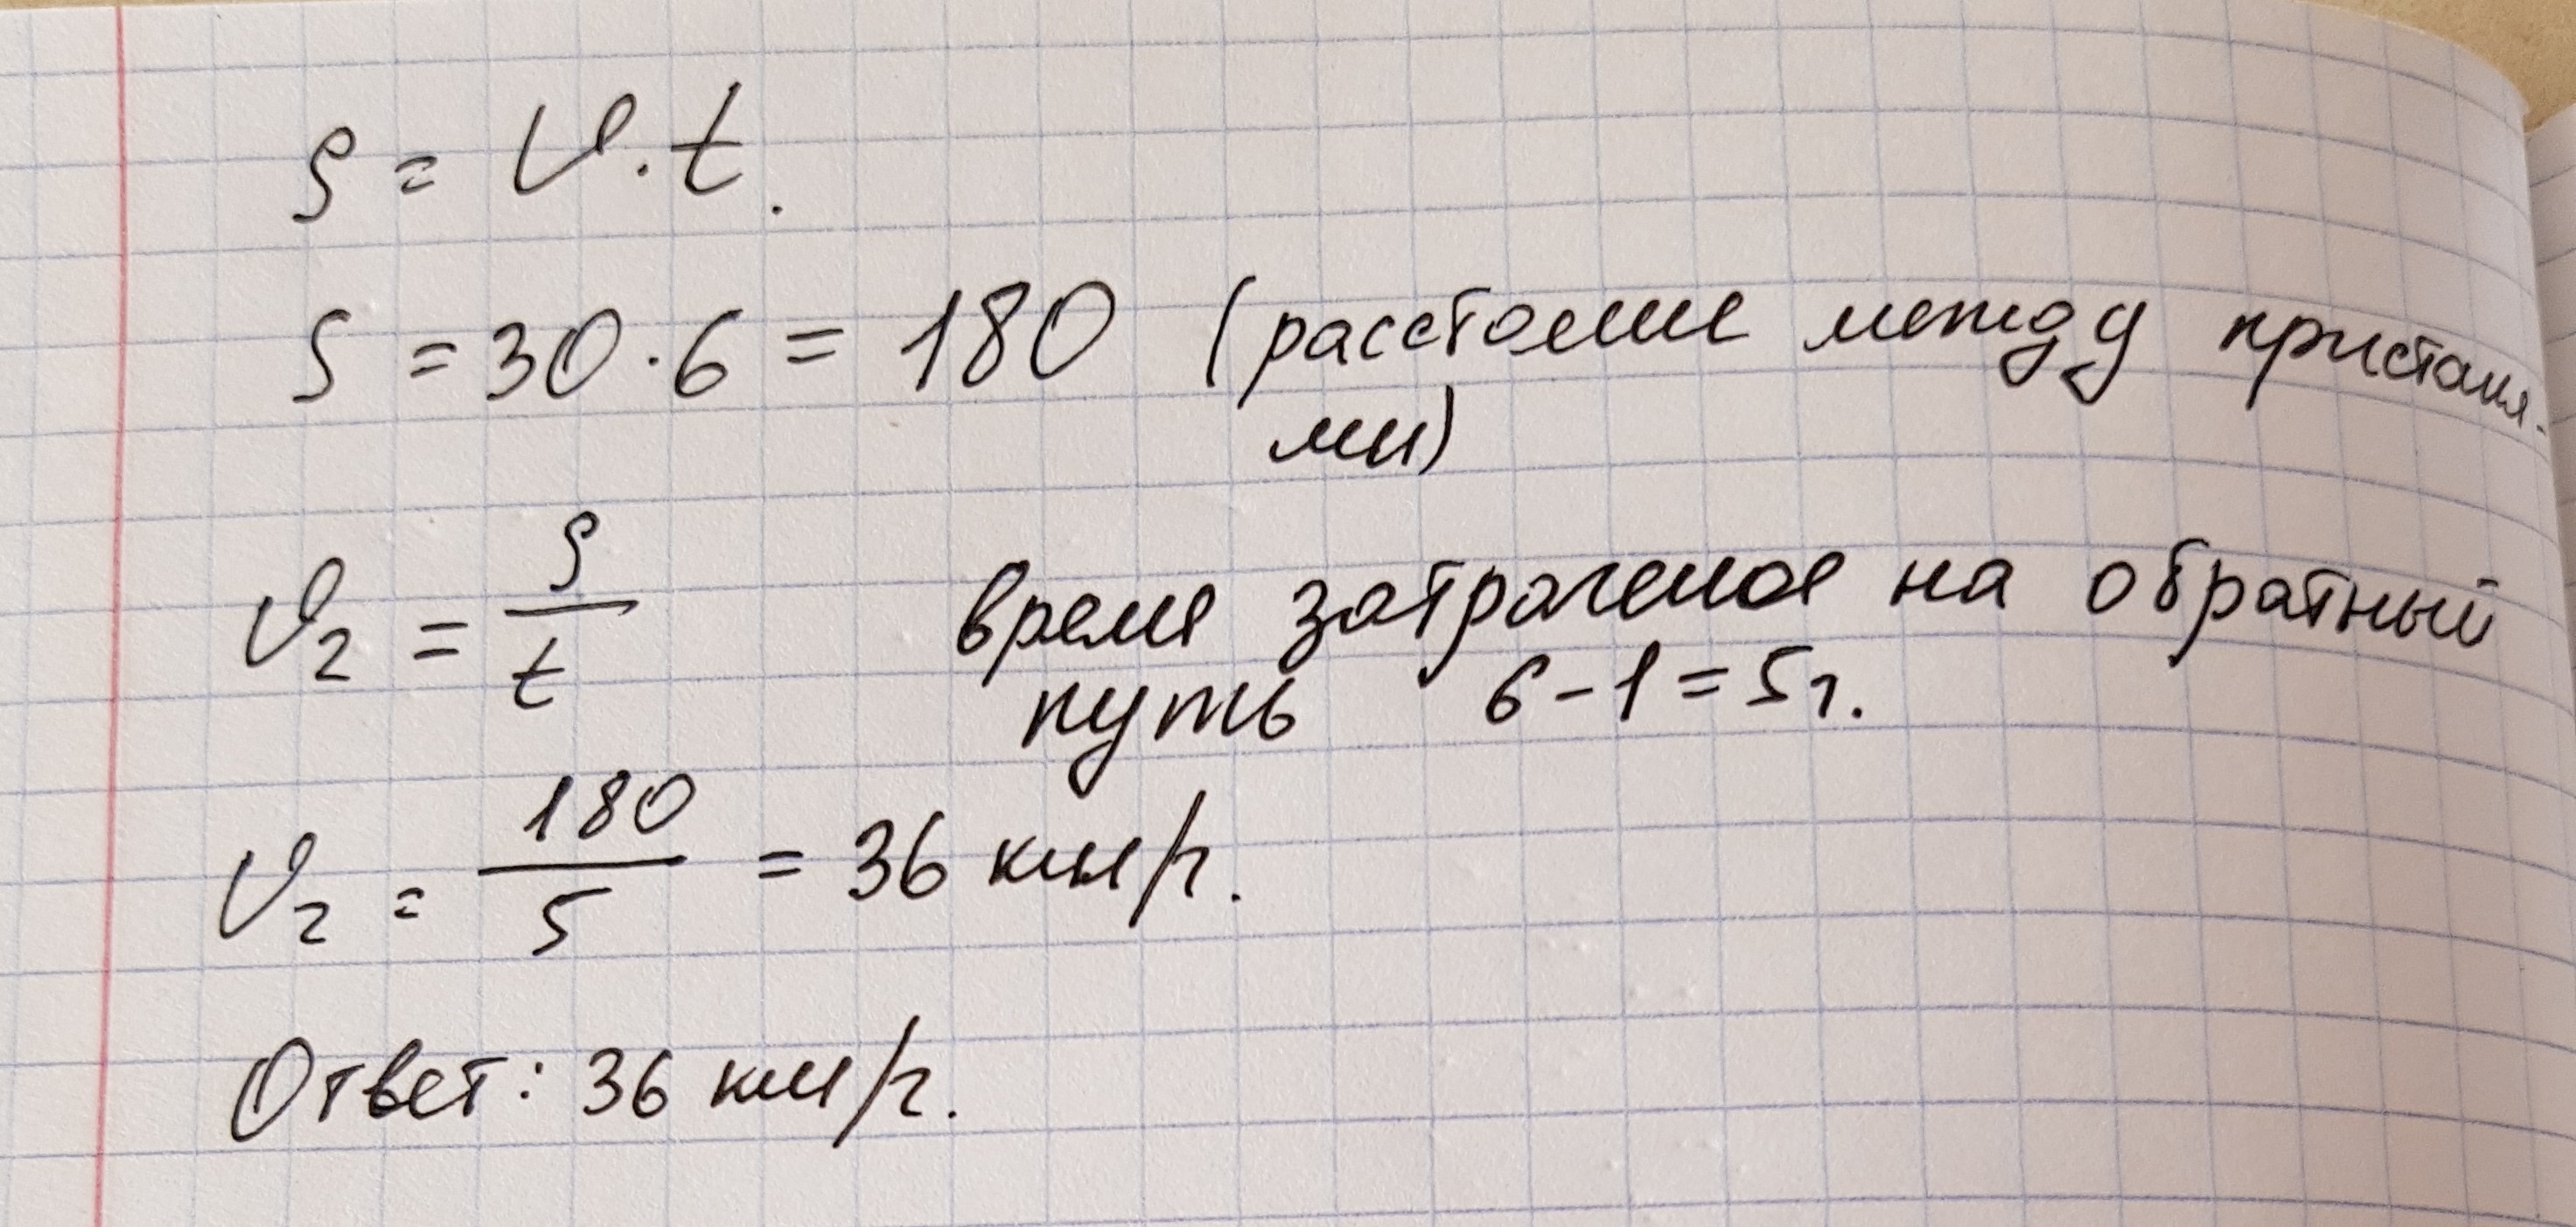 S = V · t.
S = 30 · 6 = 180 (расстояние между пристаня-
ми)
V₂ = S/t время затраченое на обратный
путь 6 - 1 = 5ч.
V₂ = 180/5 = 36 км/ч.
Ответ: 36 км/ч.